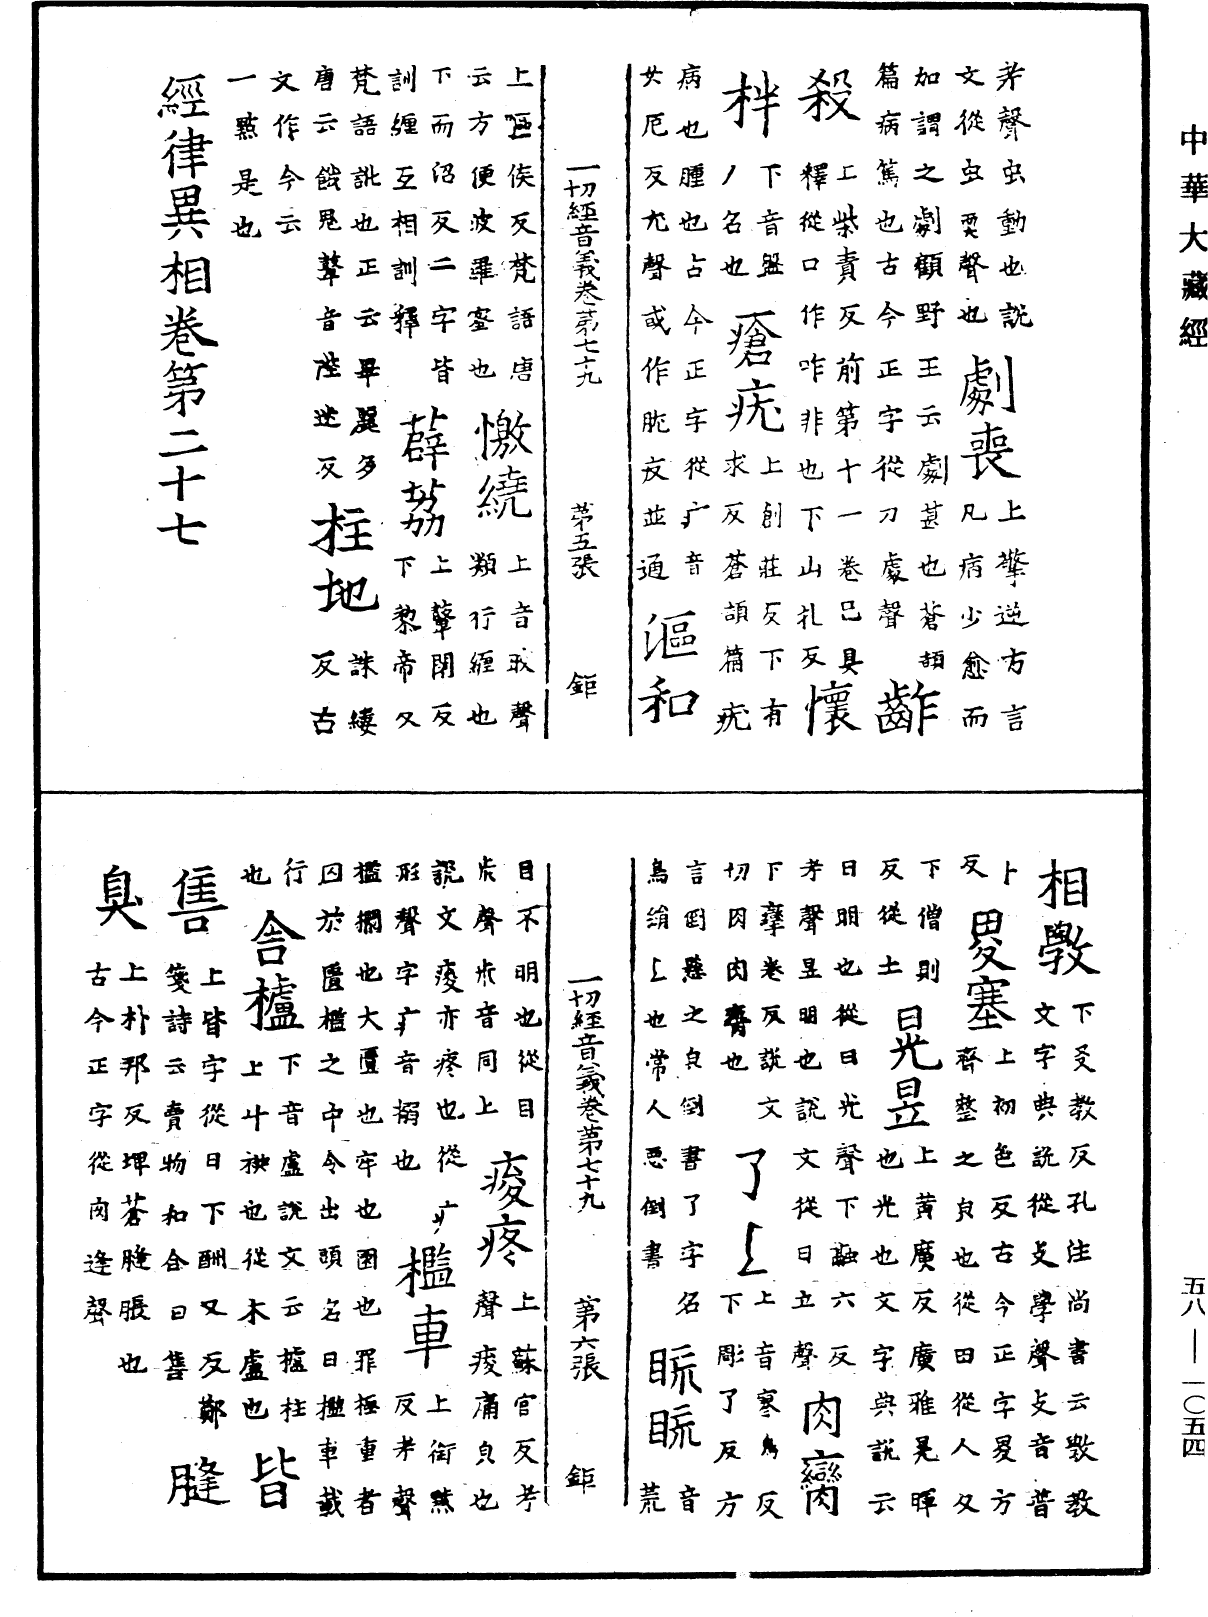 中華大藏經
矛聲虫動也說
文從虫耎聲也
劇喪
上擎逆方言
凡病少愈而
加謂之劇顧野王云劇甚也蒼頡
篇病篤也古今正字從刀豦聲
齚
殺
上柴責反前第十一卷已具
釋從口作咋非也下山札反
懷
柈
下音盤
ノ名也
瘡疣
上創莊反下有
求反蒼頡篇疣
病也腫也占今正字從疒音
女厄反尤聲或作肬疫並通
漚和
一切經音義卷第七十九 第五張 鉅
上謳侯反梵語唐
云方便波羅蜜也
憿繞
上音聲
類行纏也
下而沼反二字皆
訓纏互相訓釋
薜荔
上鼙閉反
下黎帝反
梵語訛也正云畢麗多
唐云餓鬼鼙音陛迷反
拄地
誅縷
反古
文作今云
一點是也
經律異相卷第二十七
相斆
下爻教反孔注尚書云斆教
文字典說從攴學聲攴音普
卜
反
畟塞
上初色反古今正字畟方
齊整之皃也從田從人夂
下僧則
反從土
晃昱
上黃廣反廣雅晃暉
也光也文字典說云
日明也從日光聲下融六反
考聲昱明也說文從日立聲
肉臠
下攣卷反說文
切肉臠也
了𠄌
上音寒鳥反
下彫了反方
言倒懸之皃倒書了字名音
鳥絹𠄌也常人惡倒書
䀮䀮
荒
目不明也從目
㡆聲㡆音同上
痠疼
上蘇官反考
聲痠痛皃也
說文痠亦疼也從疒
形聲字疒音搦也
檻車
上銜黤
反考聲
檻攔也大匱也牢也圈也罪極重者
囚於匱檻之中令出頭名曰檻車載
行
也
舍櫨
下音盧說文云櫨柱
上斗栱也從木盧也
皆
售
上皆字從日下酬又反鄭
箋詩云賣物和合曰售
膖
臭
上朴邦反埤蒼膖脹也
古今正字從肉逄聲
一切經音義卷第七十九 第六張 鉅
五八—一〇五四